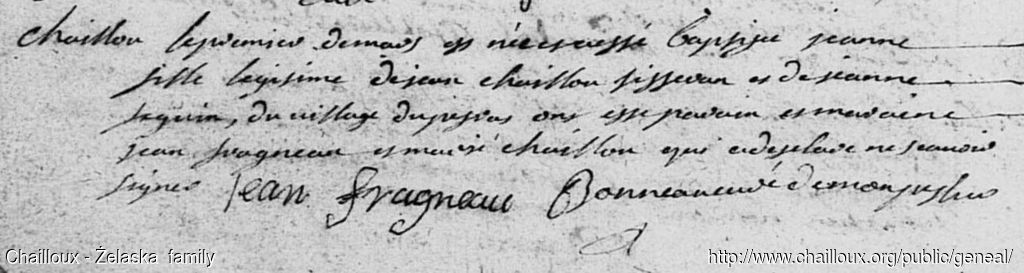 chaillou le premier de mars est née et a esté baptisée jeanne
fille legitime de jean chaillou tisseran et de jeanne
seguin, du village du ont esté parain et maraine
jean fragneau et marie chaillou qui a desclaré ne scavoir
signer Jean fragneau Bonneau curé de
Chailloux - Żelaska family
http://www.chailloux.org/public/geneal/